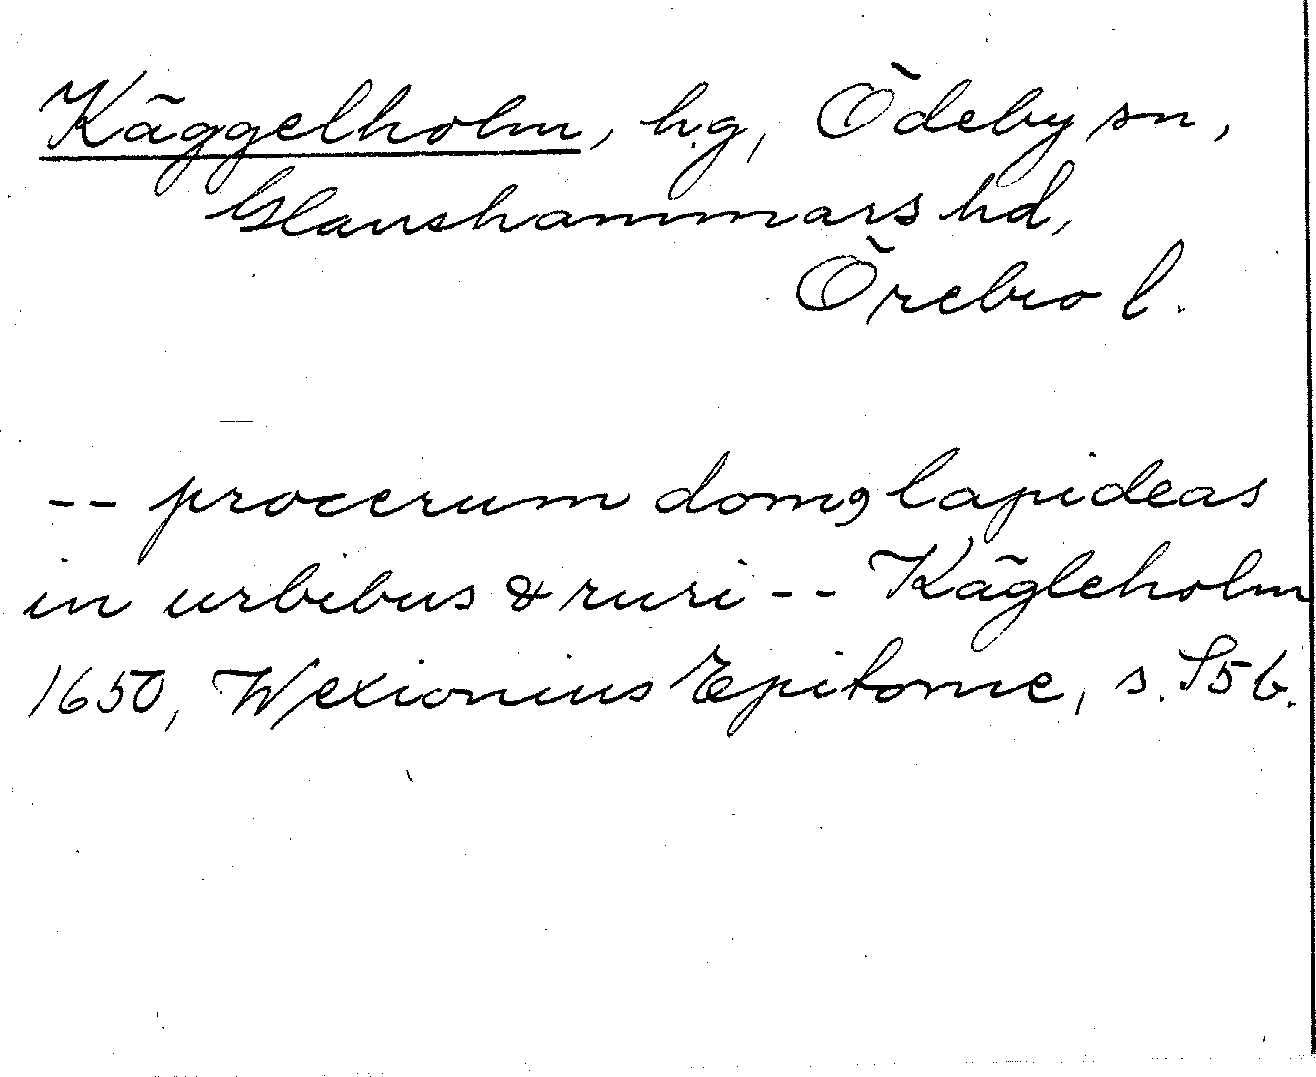 Käggelholm, hg, Ödeby sn,
Glanshammars hd,
Örebro l.
-- procerum domꝰ lapideas
in urbibus & ruri -- Kägleholm
1650, Wexionius Epitome, s. S5b.